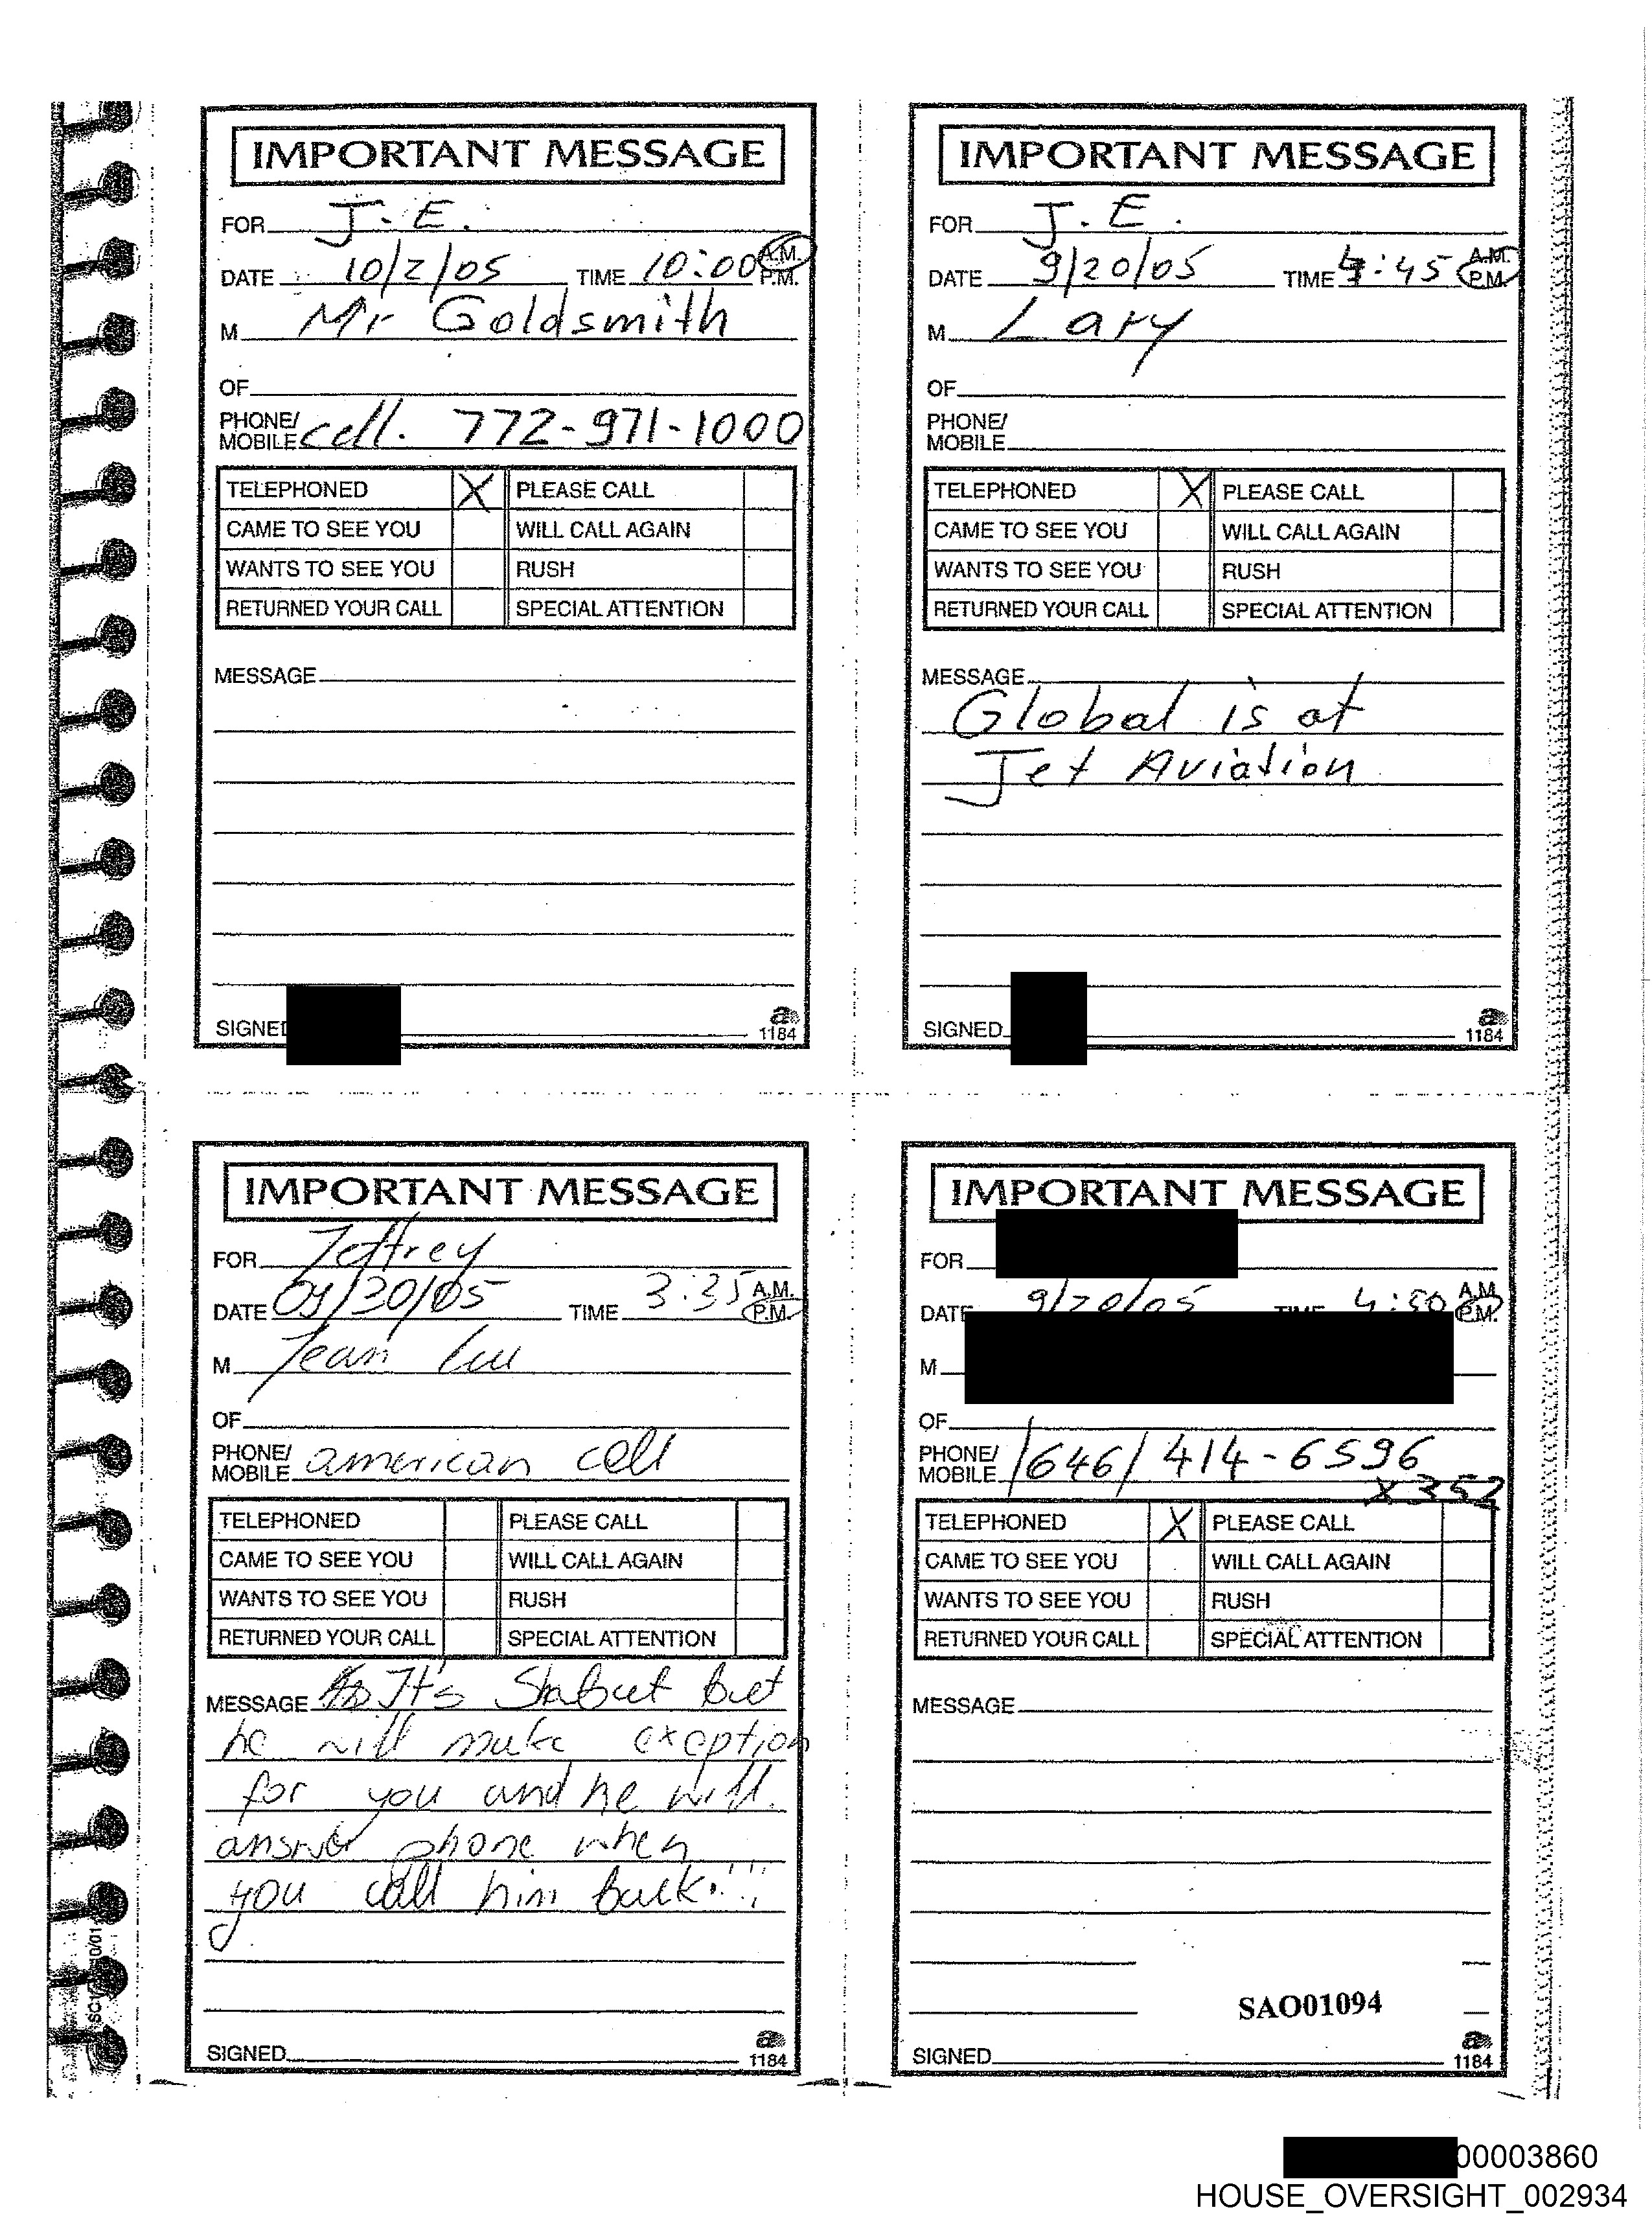 IMPORTANT MESSAGE
FOR J. E.
DATE 10/2/05 TIME 10:00 A.M. P.M.
M Mr Goldsmith
OF
PHONE/ MOBILE cell. 772-971-1000
TELEPHONED X PLEASE CALL
CAME TO SEE YOU WILL CALL AGAIN
WANTS TO SEE YOU RUSH
RETURNED YOUR CALL SPECIAL ATTENTION
MESSAGE
SIGNED
a
1184
IMPORTANT MESSAGE
FOR J. E.
DATE 9/20/05 TIME 4:45 A.M. P.M.
M Lary
OF
PHONE/ MOBILE
TELEPHONED X PLEASE CALL
CAME TO SEE YOU WILL CALL AGAIN
WANTS TO SEE YOU RUSH
RETURNED YOUR CALL SPECIAL ATTENTION
MESSAGE
Global is at
Jet Aviation
SIGNED
a
1184
IMPORTANT MESSAGE
FOR Jeffrey
DATE TIME 3:35 A.M. P.M.
M Jean
OF
PHONE/ MOBILE american cell
TELEPHONED PLEASE CALL
CAME TO SEE YOU WILL CALL AGAIN
WANTS TO SEE YOU RUSH
RETURNED YOUR CALL SPECIAL ATTENTION
MESSAGE It's Shabut but
he will make exception
for you and he will
answer phone when
you call him back!!!
SIGNED
a
1184
IMPORTANT MESSAGE
FOR
DATE 9/20/05 TIME 4:30 A.M. P.M.
M
OF
PHONE/ MOBILE /646/ 414-6596
x352
TELEPHONED X PLEASE CALL
CAME TO SEE YOU WILL CALL AGAIN
WANTS TO SEE YOU RUSH
RETURNED YOUR CALL SPECIAL ATTENTION
MESSAGE
SAO01094
SIGNED
a
1184
00003860
HOUSE_OVERSIGHT_002934